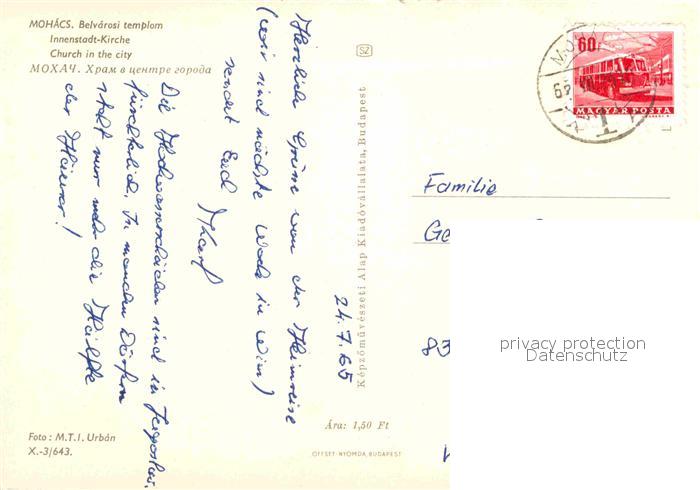 MOHÁCS. Belvárosi templom
Innenstadt-Kirche
Church in the city
МОХАЧ. Храм в центре города
SZ
60f
MAGYAR POSTA
Herzliche Grüße von der Heimreise
(wir sind nächste Woche in Wien)
sendet Euch
24.7.65
Die Hochwasserschäden sind in Jugoslav.
fürchterlich. In manchen Dörfern
steht nur mehr die Hälfte
der Häuser!
Familie
Ge
83
privacy protection
Datenschutz
Képzőművészeti Alap Kiadóvállalata, Budapest
Foto: M.T.I. Urbán
X.-3/643.
Ára: 1,50 Ft
OFFSET-NYOMDA, BUDAPEST